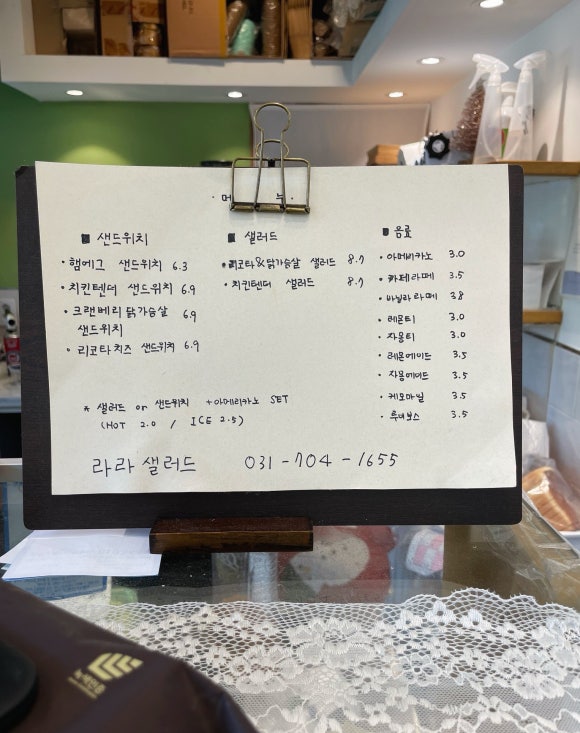 · 메 뉴 ·
■ 샌드위치
· 햄에그 샌드위치 6.3
· 치킨텐더 샌드위치 6.9
· 크랜베리 닭가슴살 6.9
샌드위치
· 리코타치즈 샌드위치 6.9
■ 샐러드
· 리코타&닭가슴살 샐러드 8.7
· 치킨텐더 샐러드 8.7
■ 음료
· 아메리카노 3.0
· 카페라떼 3.5
· 바닐라라떼 3.8
· 레몬티 3.0
· 자몽티 3.0
· 레몬에이드 3.5
· 자몽에이드 3.5
· 케모마일 3.5
· 루이보스 3.5
* 샐러드 or 샌드위치 +아메리카노 SET
(HOT 2.0 / ICE 2.5)
라라 샐러드 031-704-1655
녹색인증